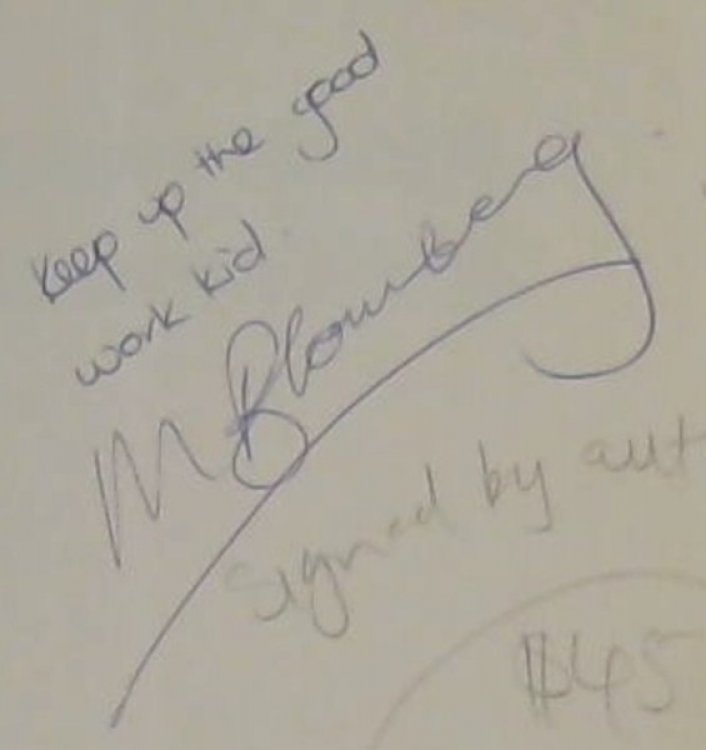 Keep up the good
work kid
M Blomberg
Signed by aut
$45